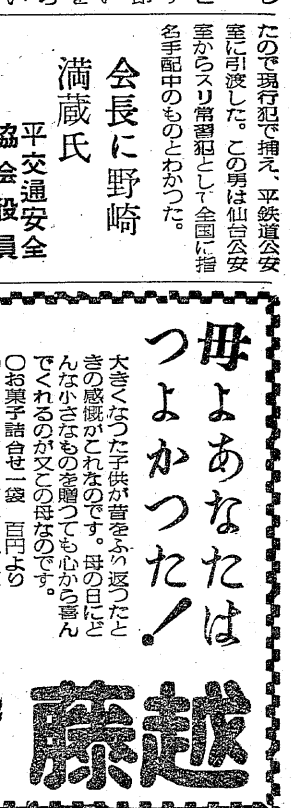 たので現行犯で捕え、平鉄道公安
室に引渡した。この男は仙台公安
室からスリ常習犯として全国に指
名手配中のものとわかつた。
会長に野崎
満蔵氏
平交通安全
協会役員
母よあなたは
つよかつた！
大きくなつた子供が昔をふり返つたと
きの感慨がこれなのです。母の日にど
んな小さなものを贈つても心から喜ん
でくれるのが又この母なのです。
〇お菓子詰合せ一袋　百円より
藤越